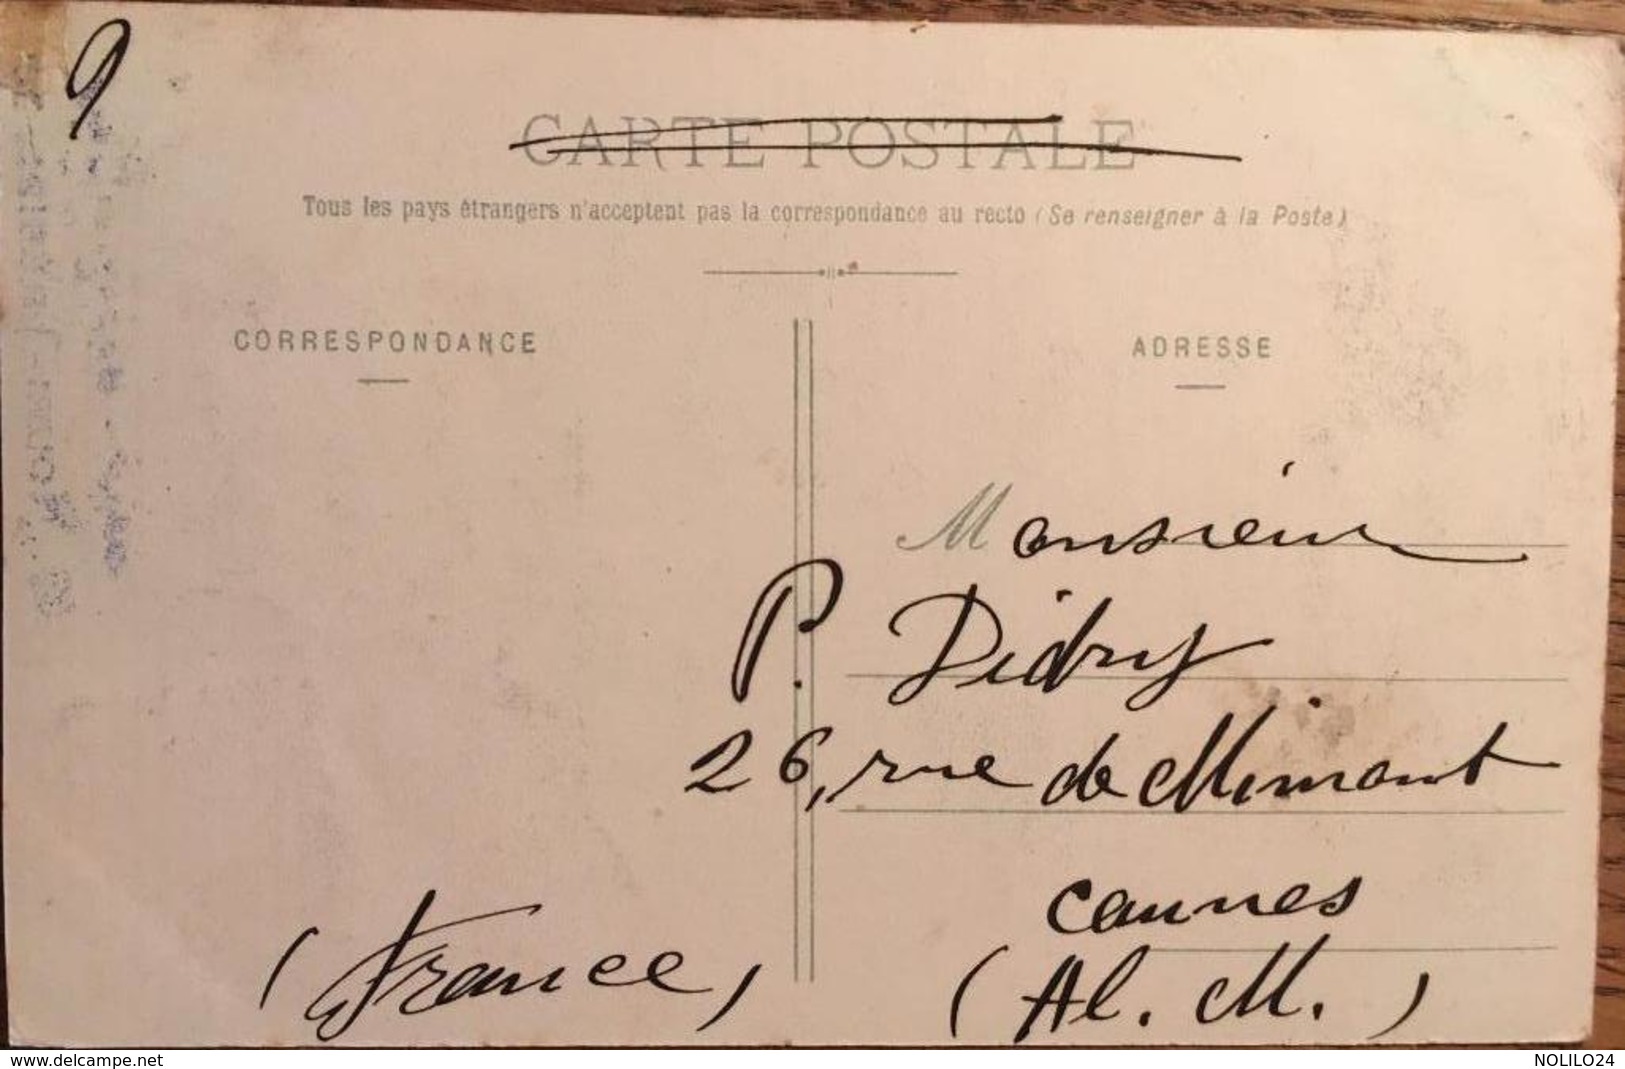 9
CARTE POSTALE
Tous les pays étrangers n'acceptent pas la correspondance au recto (Se renseigner à la Poste)
CORRESPONDANCE
ADRESSE
Monsieur
P. Didry
26, rue de Mimont
Cannes
(France)
(Al. M.)
www.delcampe.net
NOLILO24